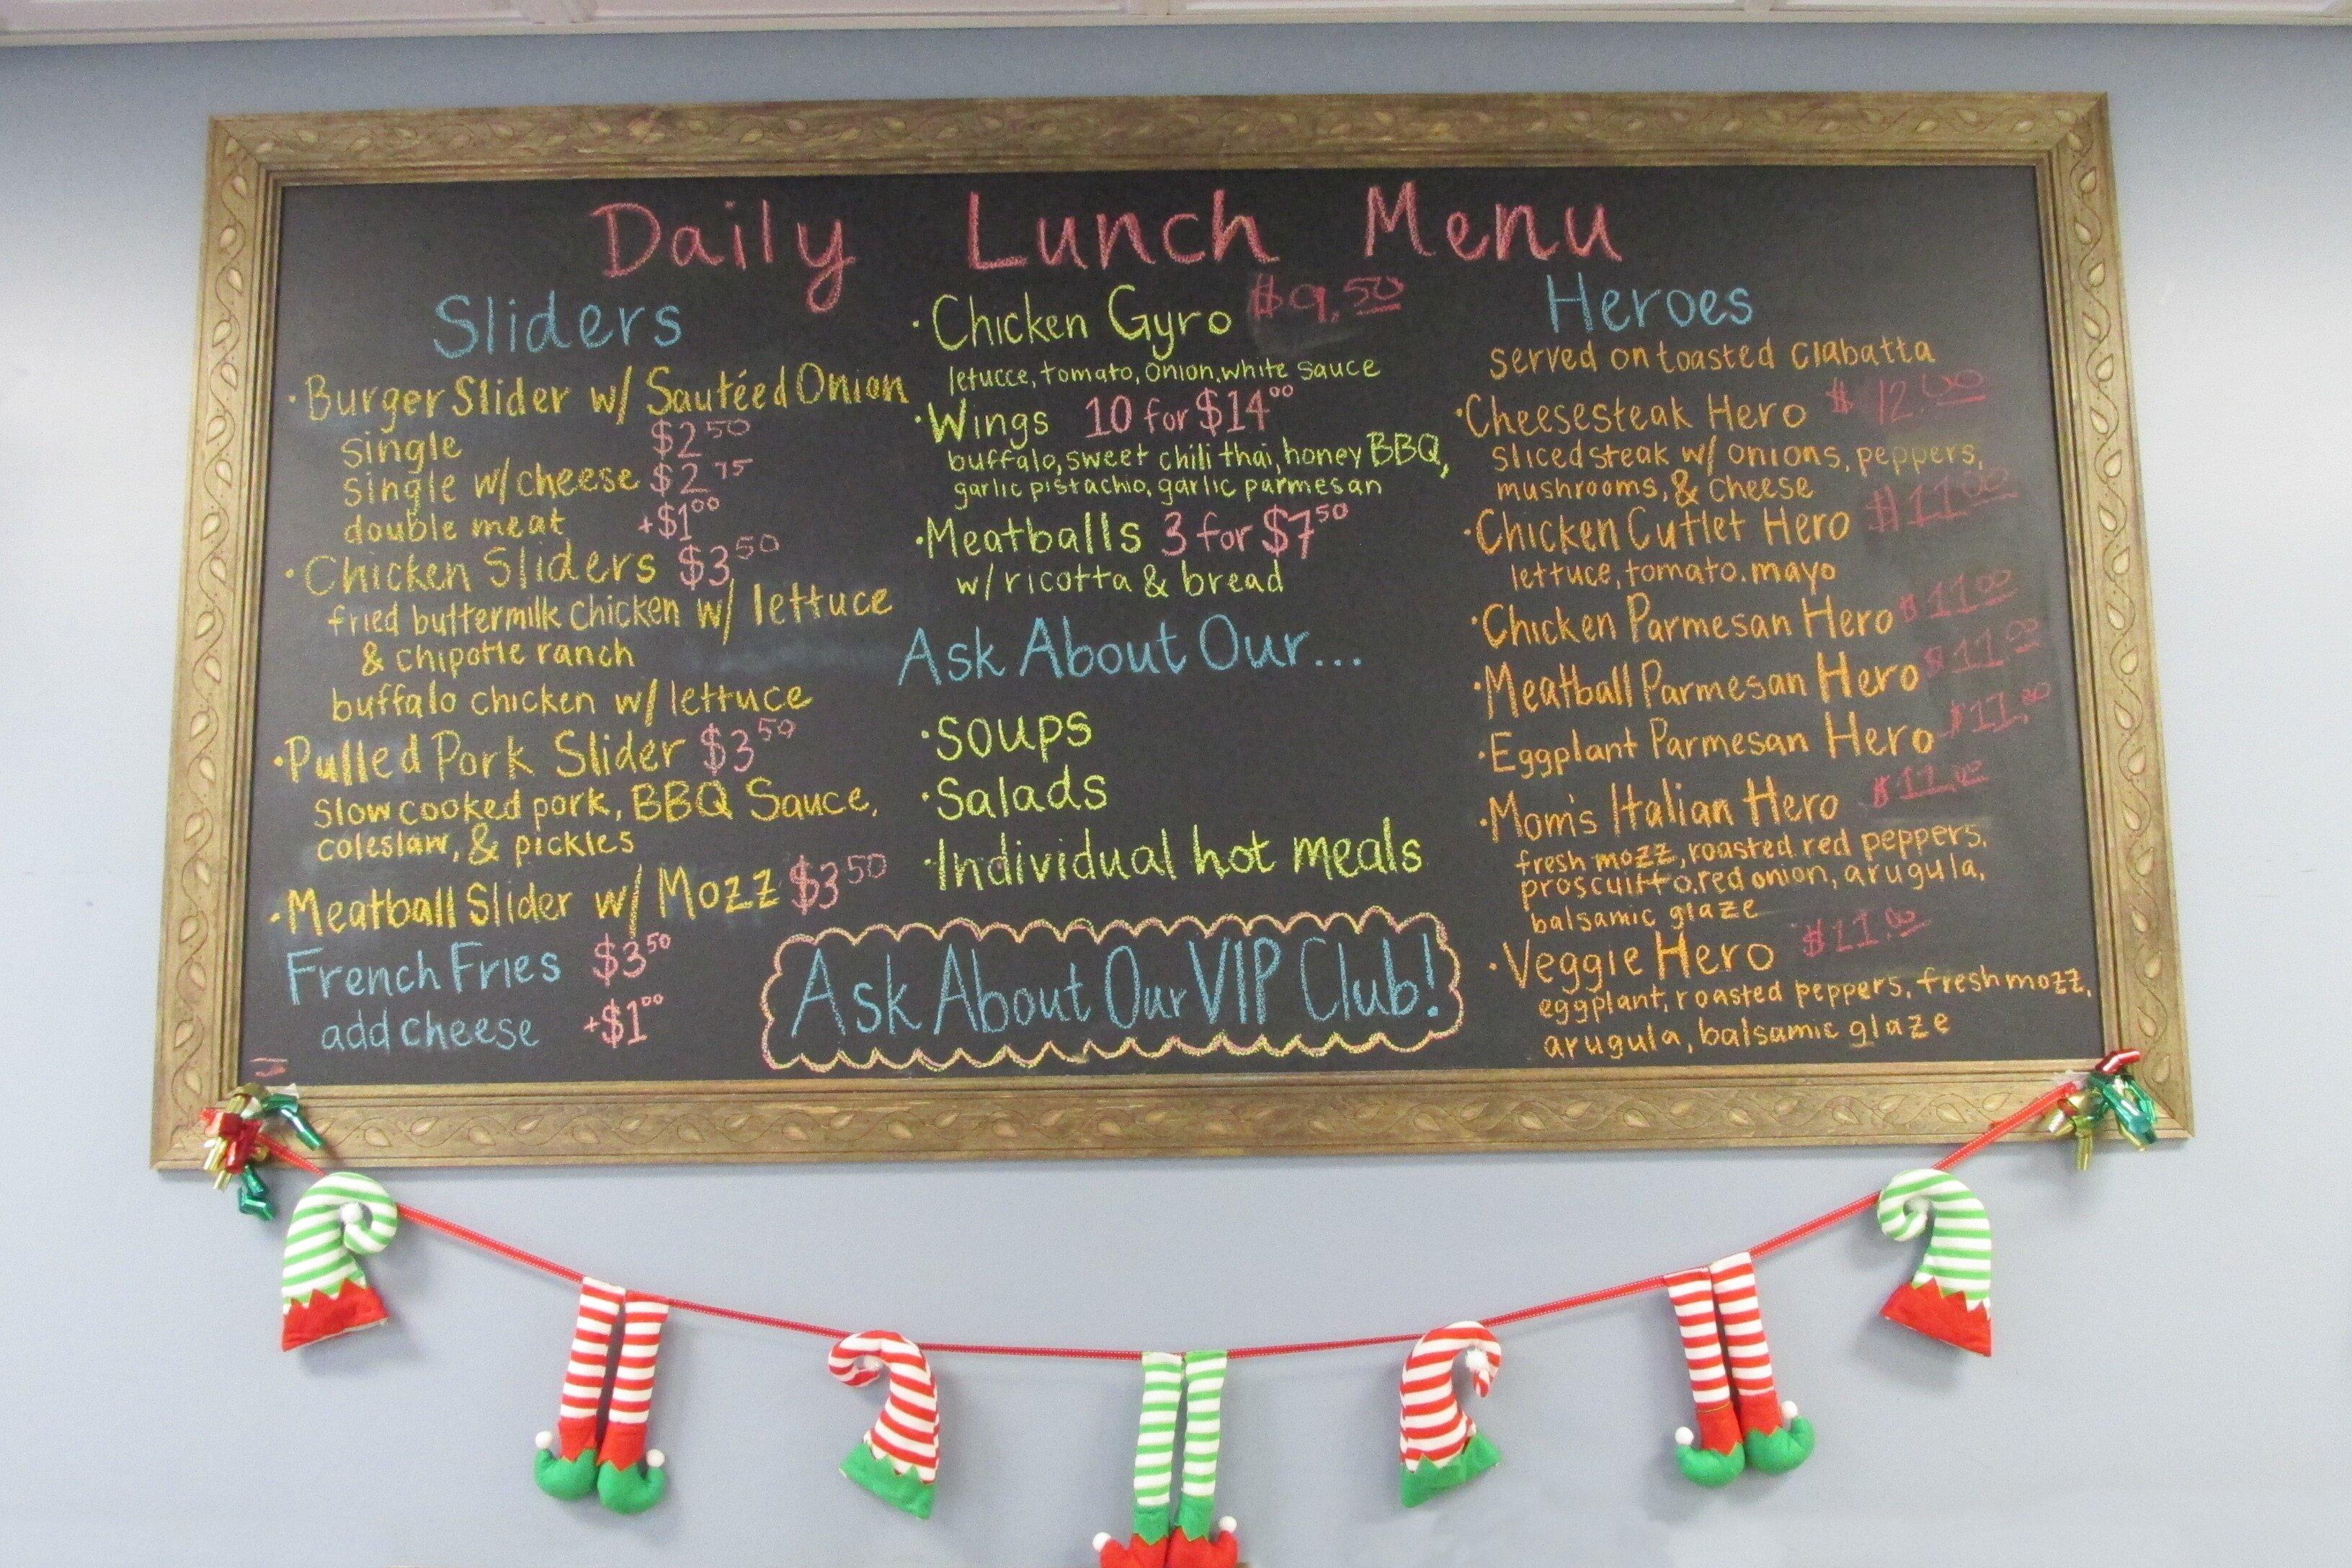 Daily Lunch Menu
Sliders
·Burger Slider w/ Sautéed Onion
single $2.50
single w/cheese $2.75
double meat +$1.00
·Chicken Sliders $3.50
fried buttermilk chicken w/ lettuce
& chipotle ranch
buffalo chicken w/ lettuce
·Pulled Pork Slider $3.50
slow cooked pork, BBQ Sauce,
coleslaw, & pickles
·Meatball Slider w/ Mozz $3.50
French Fries $3.50
add cheese +$1.00
·Chicken Gyro $9.50
letucce, tomato, onion, white sauce
·Wings 10 for $14.00
buffalo, sweet chili thai, honey BBQ,
garlic pistachio, garlic parmesan
·Meatballs 3 for $7.50
w/ ricotta & bread
Ask About Our...
·Soups
·Salads
·Individual hot meals
Ask About Our VIP Club!
Heroes
served on toasted ciabatta
·Cheesesteak Hero $12.00
sliced steak w/ onions, peppers,
mushrooms, & cheese
·Chicken Cutlet Hero $11.00
lettuce, tomato, mayo
·Chicken Parmesan Hero $11.00
·Meatball Parmesan Hero $11.00
·Eggplant Parmesan Hero $11.00
·Mom's Italian Hero $11.00
fresh mozz, roasted red peppers,
proscuitto, red onion, arugula,
balsamic glaze
·Veggie Hero $11.00
eggplant, roasted peppers, fresh mozz,
arugula, balsamic glaze